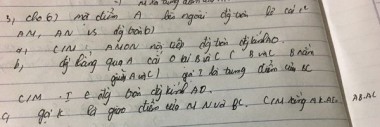 3, cho (O) một điểm A bên ngoài đg tròn kẻ các
AM, AN vs đg tròn (O)
a, C/M: AMON nội tiếp đg tròn đg kính AO.
b, đg thẳng qua A cắt O tại B và C ( B và C B nằm
giữa A và C) gọi I là trung điểm của BC
C/M I ∈ đg tròn đg kính AO.
c, gọi K là giao điểm của MN và BC. C/M rằng AK.AI = AB.AC